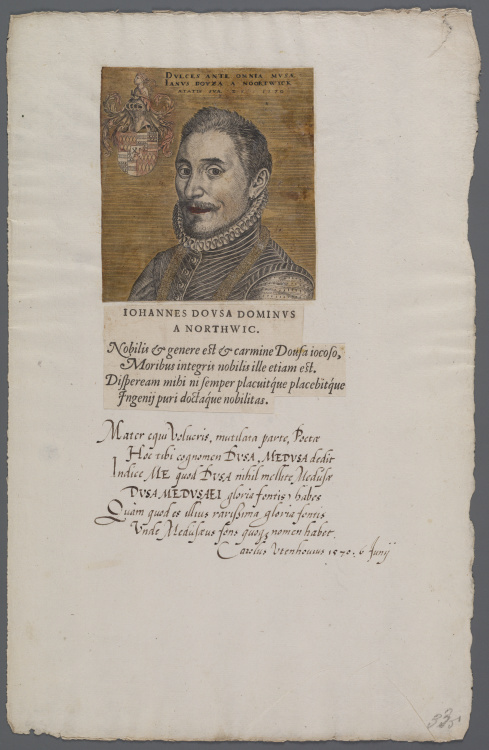 DVLCES ANTE OMNIA MVSÆ
IANVS DOVZA A NOORTWICK
ÆTATIS SVÆ
IOHANNES DOVSA DOMINVS
A NORTHWIC.
Nobilis & genere est & carmine Dousa iocoso,
Moribus integris nobilis ille etiam est.
Dispeream mihi ni semper placuitque placebitque
Ingenij puri doctaque nobilitas.
Mater equi volucris, mutilata parte, Poetæ
Hoc tibi cognomen DVSA, MEDVSA dedit
Indice ME quod DVSA nihil Medusæ
DVSA MEDVSAEI gloria fontis habes
Quàm quod es illius rarissima gloria fontis
Vnde Medusæus fons quoq; nomen habet.
Carolus Vtenhouius 1570. 6 Junij
33